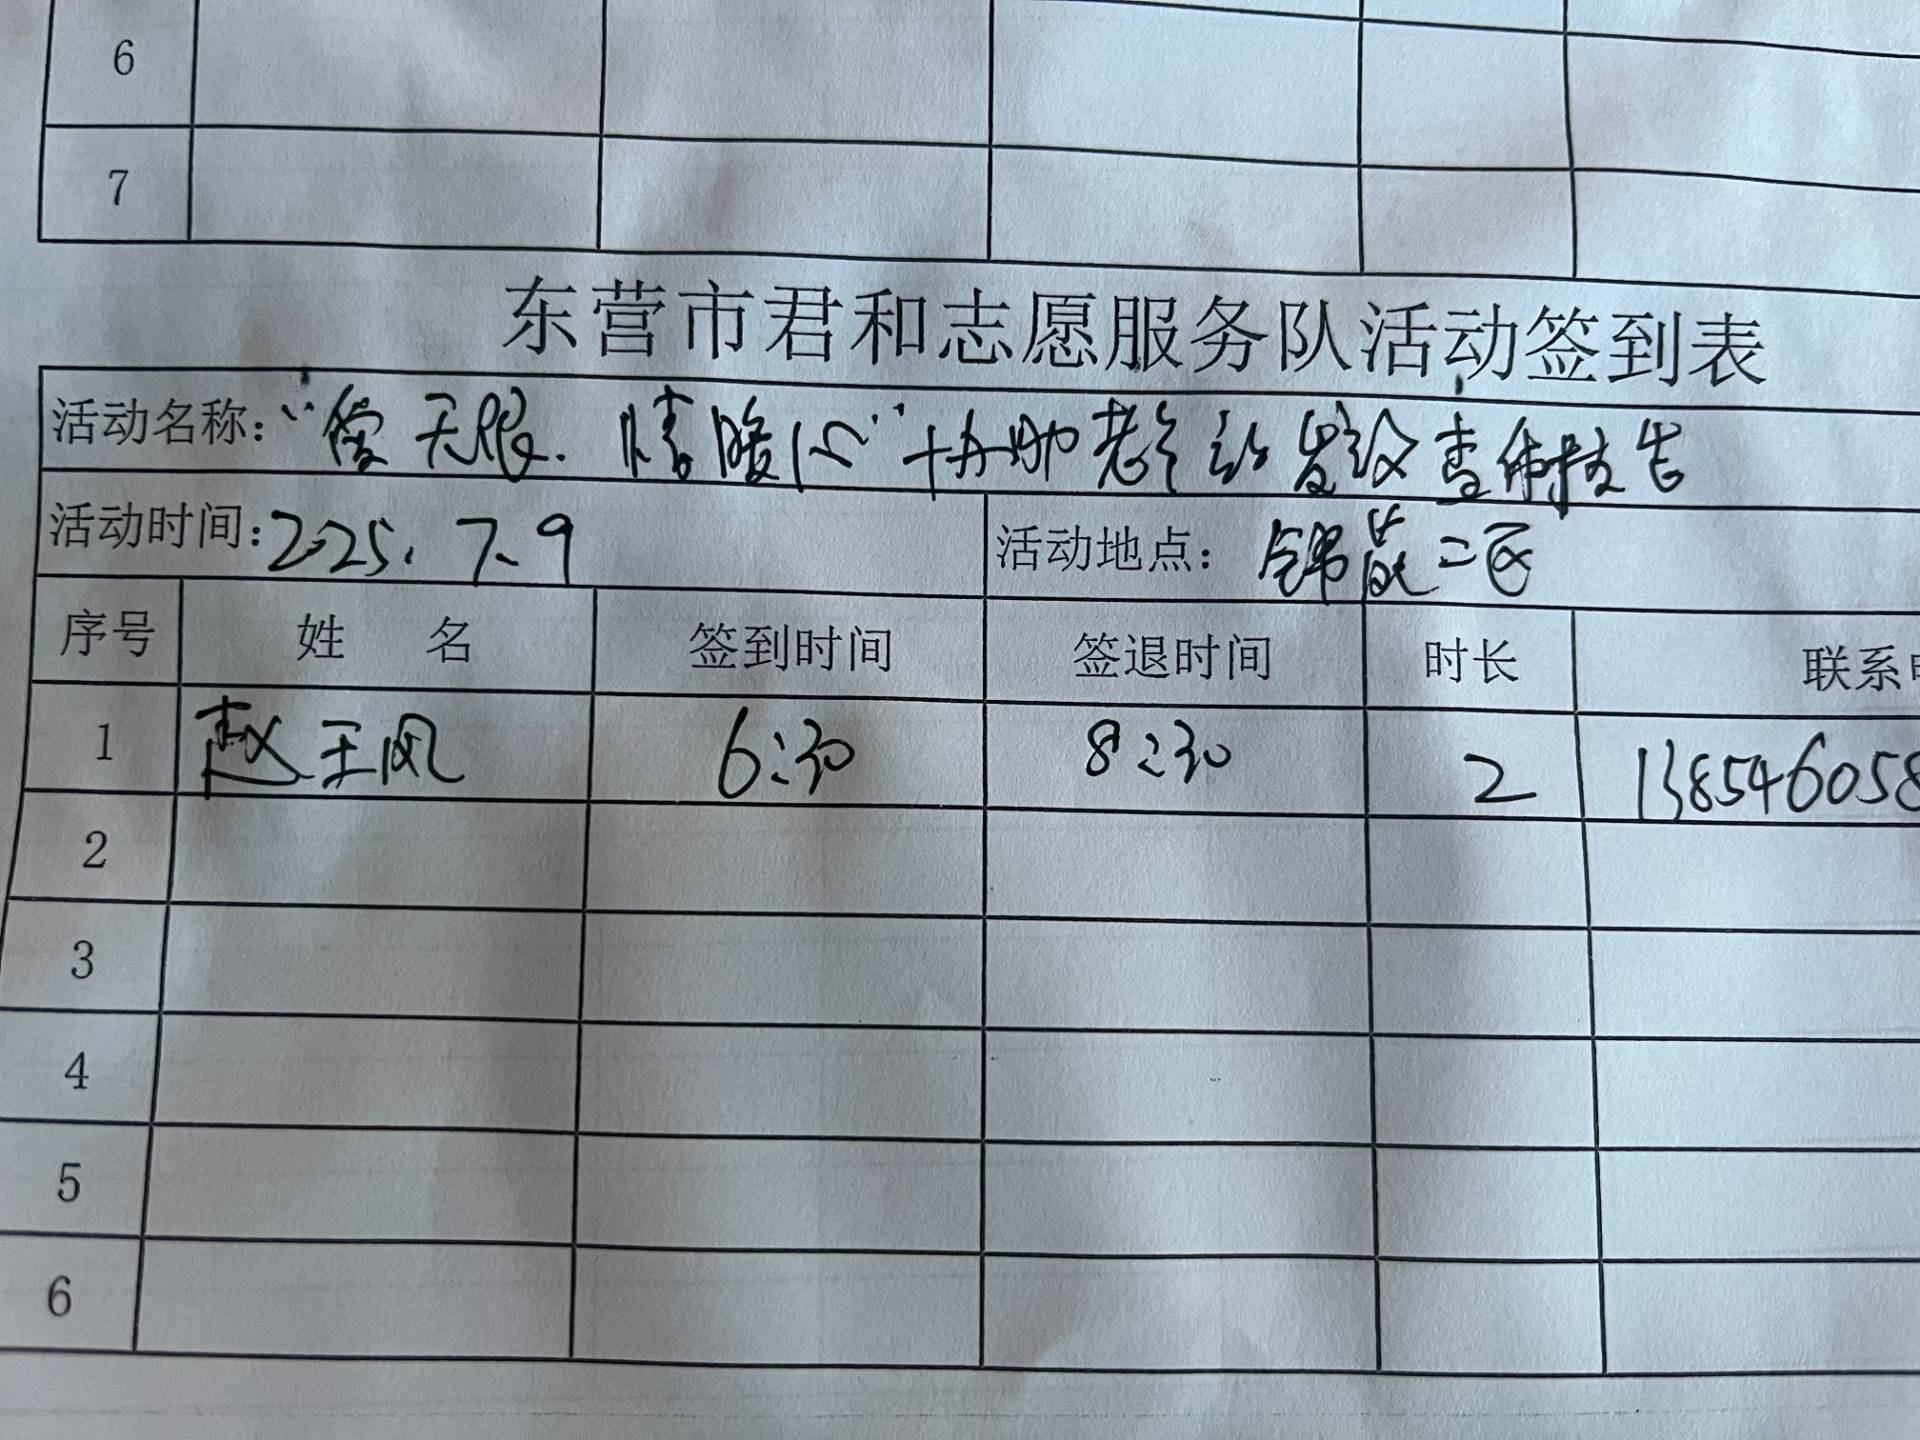 6
7
东营市君和志愿服务队活动签到表
活动名称：“爱无限.情暖心”协助老年站发放查体报告
活动时间：2025.7.9 活动地点：锦苑二区
序号 姓 名 签到时间 签退时间 时长 联系
1 赵玉凤 6:30 8:30 2 138546058
2
3
4
5
6